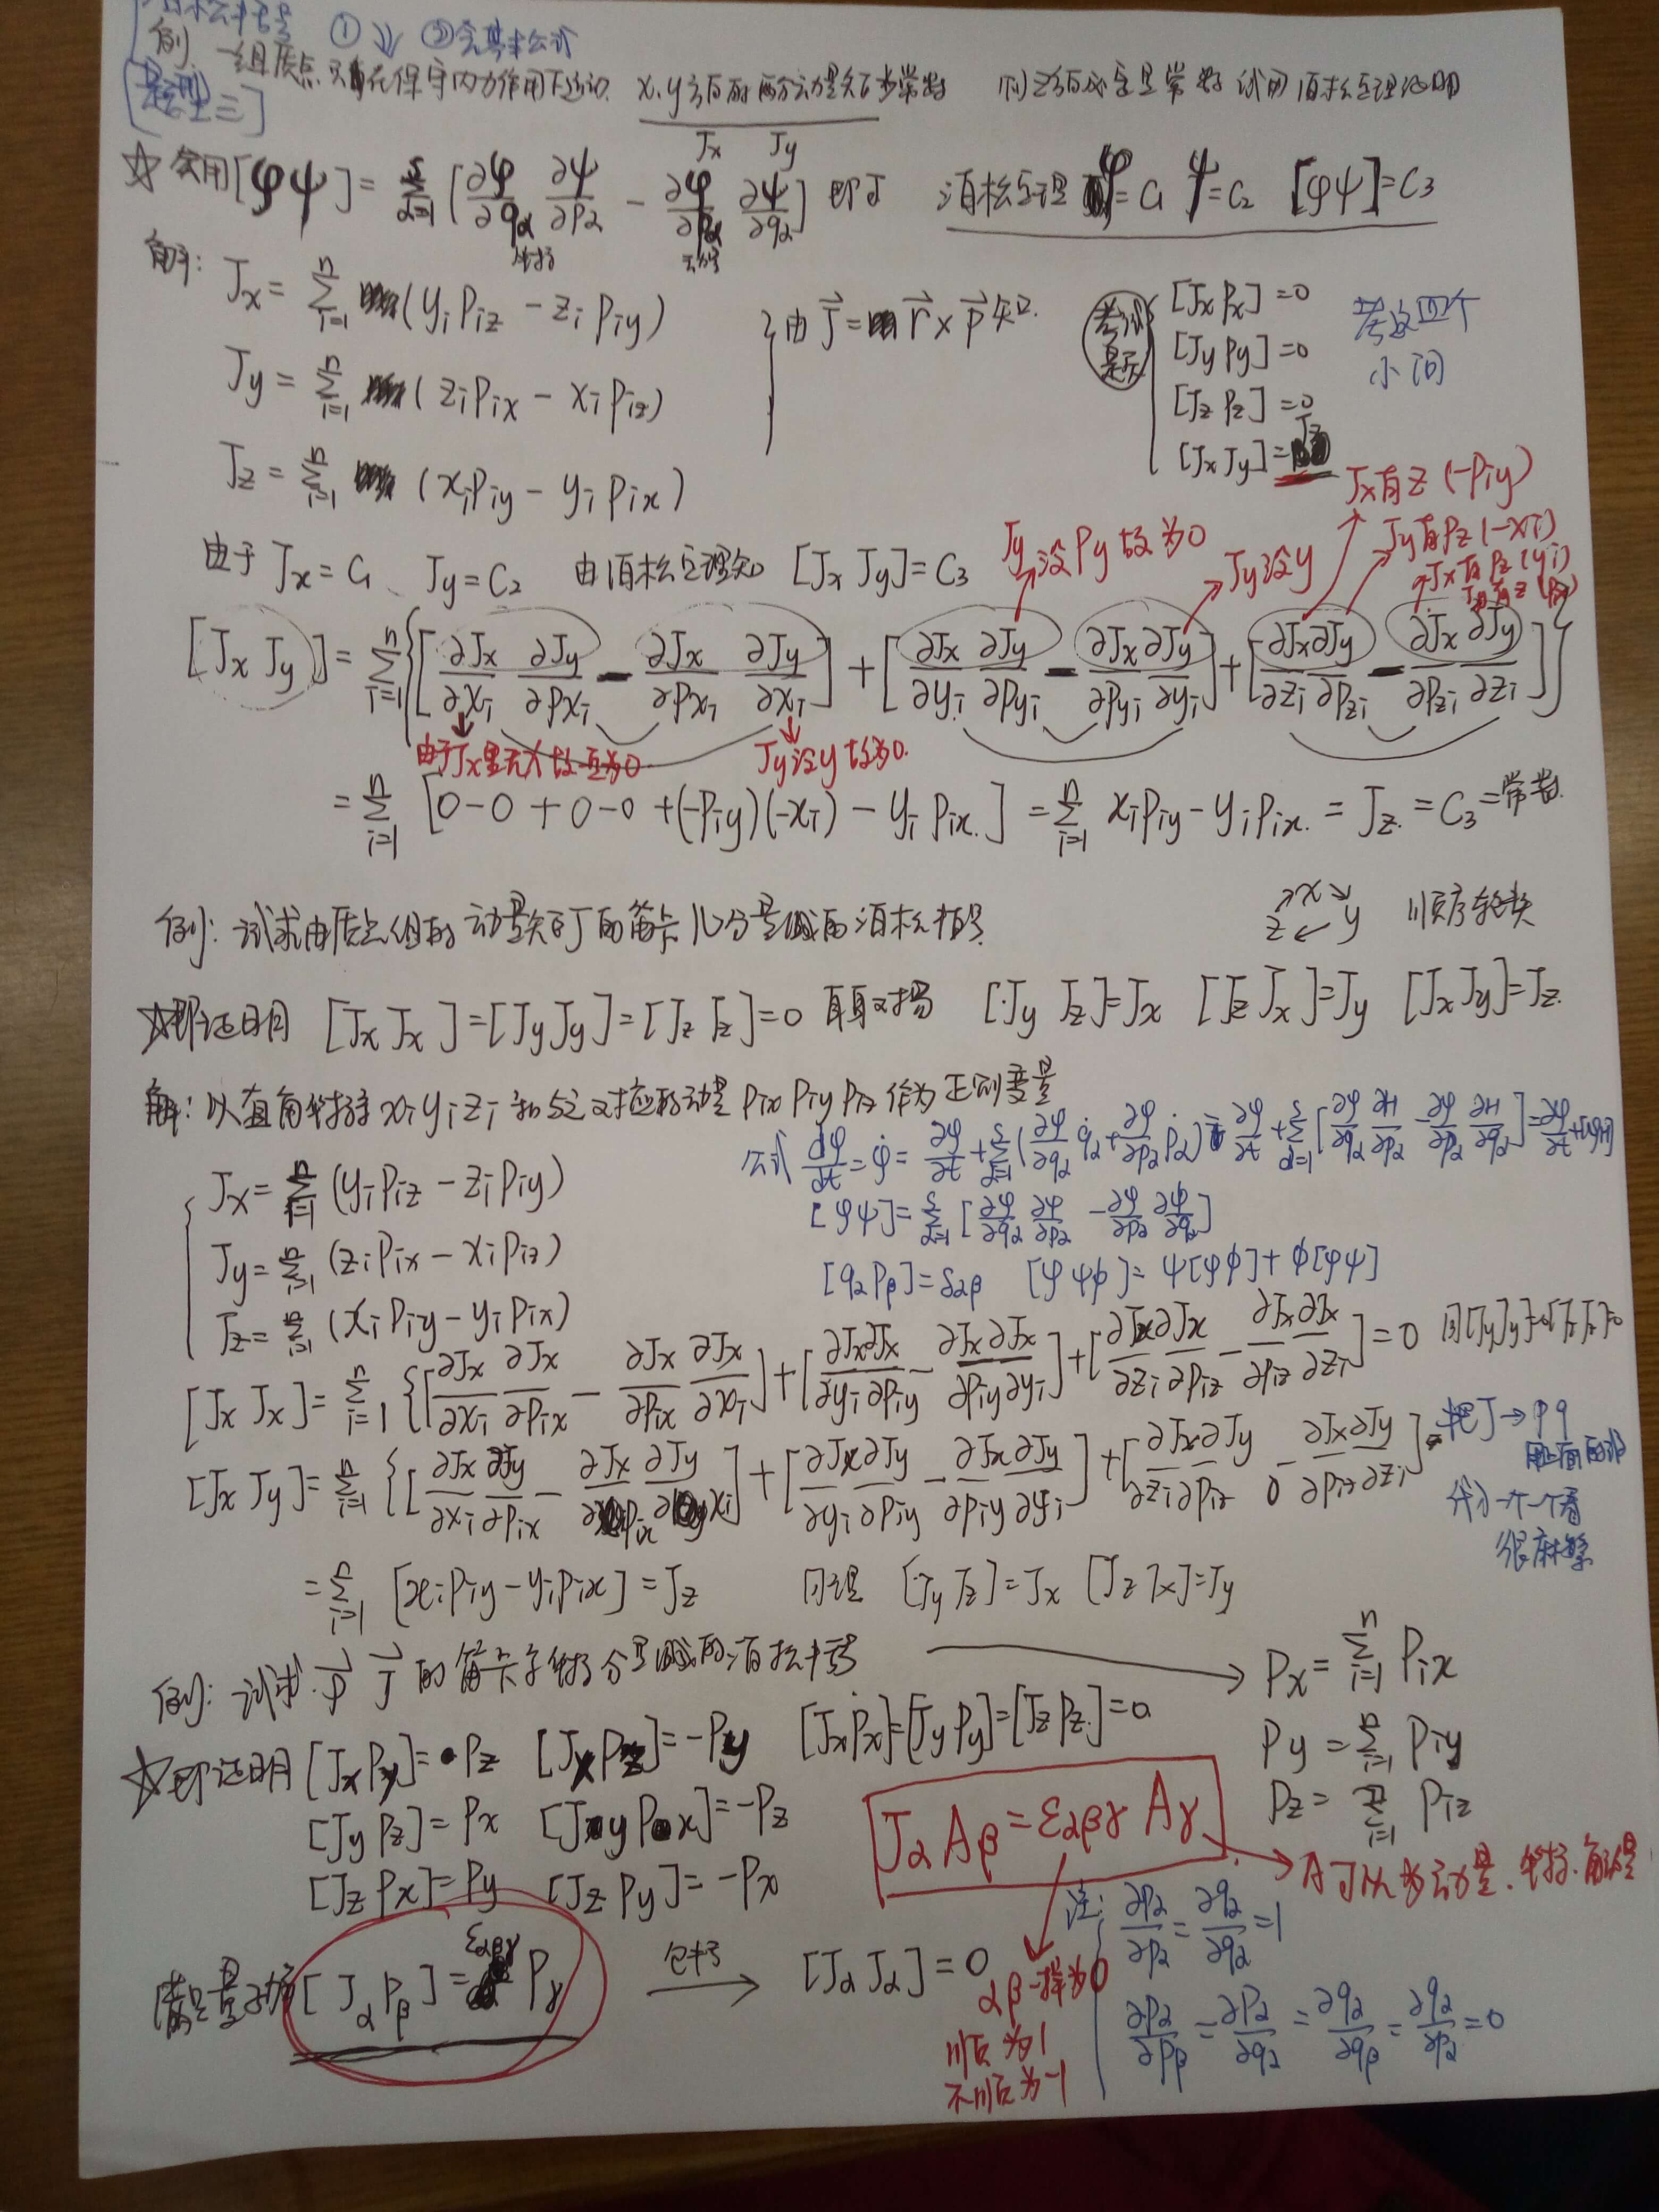 泊松括号 ① ↓ ② 会基本公式
例 一组质点只有在保守内力作用下运动. x.y方向的两分动量矩为常数 则z方向必定是常数 试用泊松定理证明
[题型三]
Jx Jy
☆会用[φψ]=Σ_{α=1}^{s}[∂φ/∂qα ∂ψ/∂pα - ∂φ/∂pα ∂ψ/∂qα] 即可 泊松定理 φ=C₁ ψ=C₂ [φψ]=C₃
坐标 动量
解: Jx=Σ_{i=1}^{n}(yi piz - zi piy)
Jy=Σ_{i=1}^{n}(zi pix - xi piz)
Jz=Σ_{i=1}^{n}(xi piy - yi pix)
由 J⃗=r⃗×p⃗ 知.
考试题
[Jx Px]=0
[Jy Py]=0
[Jz Pz]=0
[Jx Jy]=Jz
考这四个
小问
由于 Jx=C₁ Jy=C₂ 由泊松定理知 [Jx Jy]=C₃
Jy没Py故为0
Jy没y
Jx有z(-piy)
Jy有Pz(-xi)
Jx有Pz(yi)
[Jx Jy]=Σ_{i=1}^{n}{[∂Jx/∂xi ∂Jy/∂pxi - ∂Jx/∂pxi ∂Jy/∂xi]+[∂Jx/∂yi ∂Jy/∂pyi - ∂Jx/∂pyi ∂Jy/∂yi]+[∂Jx/∂zi ∂Jy/∂pzi - ∂Jx/∂pzi ∂Jy/∂zi]}
由于Jx里无x故为0
Jy没y故为0.
=Σ_{i=1}^{n}[0-0+0-0+(-piy)(-xi)-yi pix.]=Σ_{i=1}^{n} xi piy-yi pix.=Jz.=C₃=常数.
例: 试求由质点组的动量矩J的笛卡儿分量组成的泊松括号.
x y z 顺序轮换
☆即证明 [Jx Jx]=[Jy Jy]=[Jz Jz]=0 [Jy Jz]=Jx [Jz Jx]=Jy [Jx Jy]=Jz.
解: 以直角坐标 xi yi zi 和与之对应的动量 pix piy piz 作为正则变量
公式 dφ/dt=φ̇=∂φ/∂t+Σ_{α=1}^{s}(∂φ/∂qα q̇α+∂φ/∂pα ṗα)=∂φ/∂t+Σ_{α=1}^{s}[∂φ/∂qα ∂H/∂pα-∂φ/∂pα ∂H/∂qα]=∂φ/∂t+[φH]
Jx=Σ_{i=1}^{n}(yi piz-zi piy)
[φψ]=Σ_{α=1}^{s}[∂φ/∂qα ∂φ/∂pα - ∂φ/∂pα ∂φ/∂qα]
Jy=Σ_{i=1}^{n}(zi pix-xi piz)
[qα pβ]=δαβ [φ ψϕ]=ψ[φϕ]+ϕ[φψ]
Jz=Σ_{i=1}^{n}(xi piy-yi pix)
[Jx Jx]=Σ_{i=1}^{n}{[∂Jx/∂xi ∂Jx/∂pix - ∂Jx/∂pix ∂Jx/∂xi]+[∂Jx/∂yi ∂Jx/∂piy - ∂Jx/∂piy ∂Jx/∂yi]+[∂Jx/∂zi ∂Jx/∂piz - ∂Jx/∂piz ∂Jx/∂zi]=0 同[JyJy]=0[JzJz]=0
[Jx Jy]=Σ_{i=1}^{n}{[∂Jx/∂xi ∂Jy/∂pix - ∂Jx/∂pix ∂Jy/∂xi]+[∂Jx/∂yi ∂Jy/∂piy - ∂Jx/∂piy ∂Jy/∂yi]+[∂Jx/∂zi ∂Jy/∂piz - ∂Jx/∂piz ∂Jy/∂zi]=
把J→pq
用上面的
一个一个看
很麻烦
=Σ_{i=1}^{n}[xi piy-yi pix]=Jz 同理 [Jy Jz]=Jx [Jz Jx]=Jy
例: 试求 P⃗ J⃗ 的笛卡尔坐标分量组成的泊松括号 → Px=Σ_{i=1}^{n} Pix
Py=Σ_{i=1}^{n} Piy
Pz=Σ_{i=1}^{n} Piz
☆即证明 [Jx Py]=Pz [Jx Pz]=-Py [Jx Px]=[Jy Py]=[Jz Pz.]=0
[Jy Pz]=Px [Jy Px]=-Pz
[Jz Px]=Py [Jz Py]=-Px
[Jα Aβ=εαβγ Aγ
A可以为动量.坐标.角动量
满足量子力 [Jα Pβ]=εαβγ Pγ 包括→ [Jα Jα]=0
αβ一样为0
顺为1
不顺为-1
注: ∂pα/∂pα=∂qα/∂qα=1
∂pα/∂pβ=∂pα/∂qα=∂qα/∂qβ=∂qα/∂pα=0